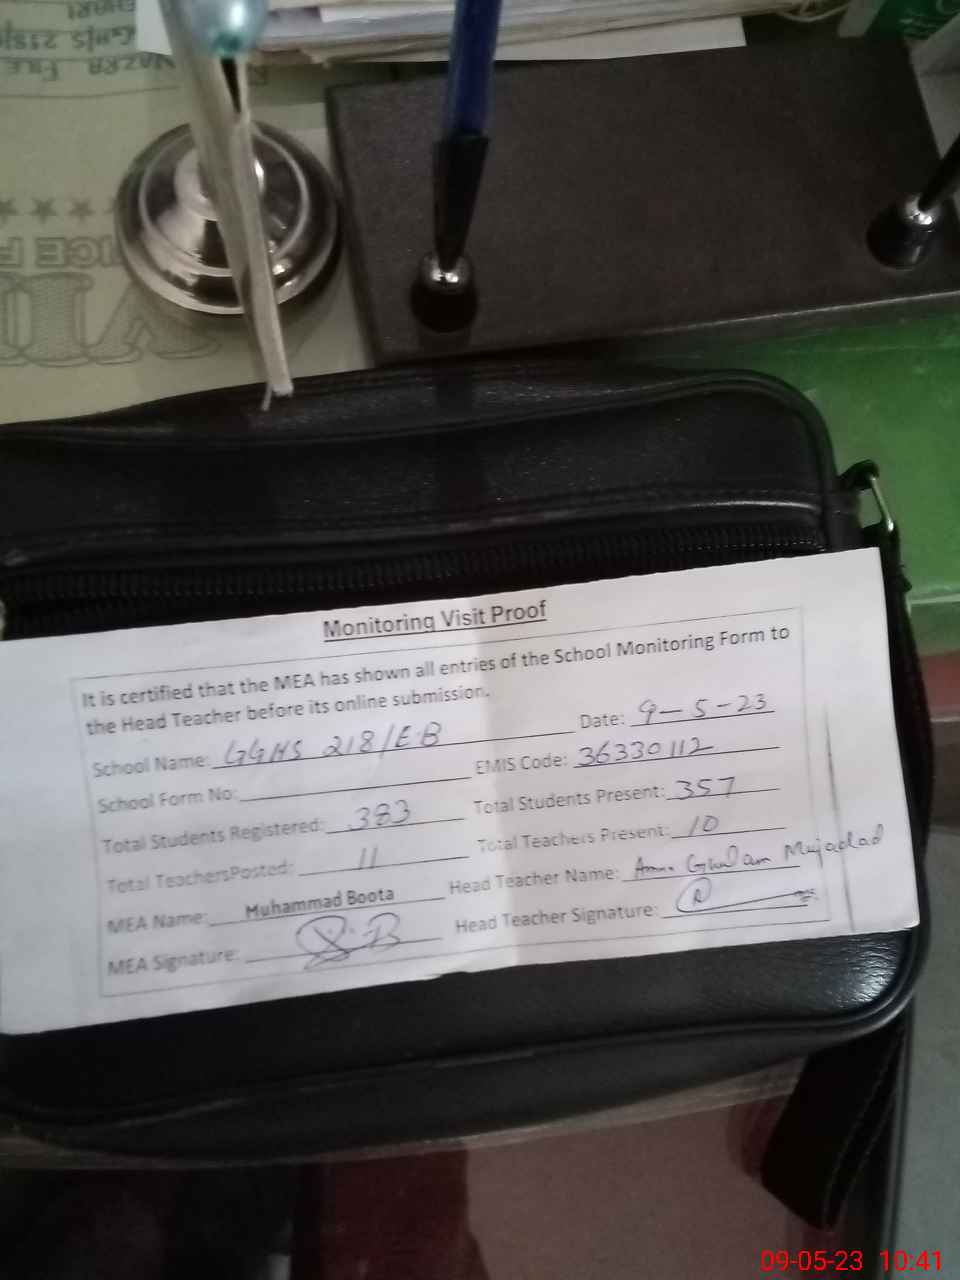 Monitoring Visit Proof
It is certified that the MEA has shown all entries of the School Monitoring Form to
the Head Teacher before its online submission.
School Name: GGHS 218/E.B Date: 9-5-23
School Form No: EMIS Code: 36330112
Total Students Registered: 383 Total Students Present: 357
Total TeachersPosted: 11 Total Teachers Present: 10
MEA Name: Muhammad Boota Head Teacher Name: Ghulam Mujadad
MEA Signature: Head Teacher Signature:
09-05-23 10:41